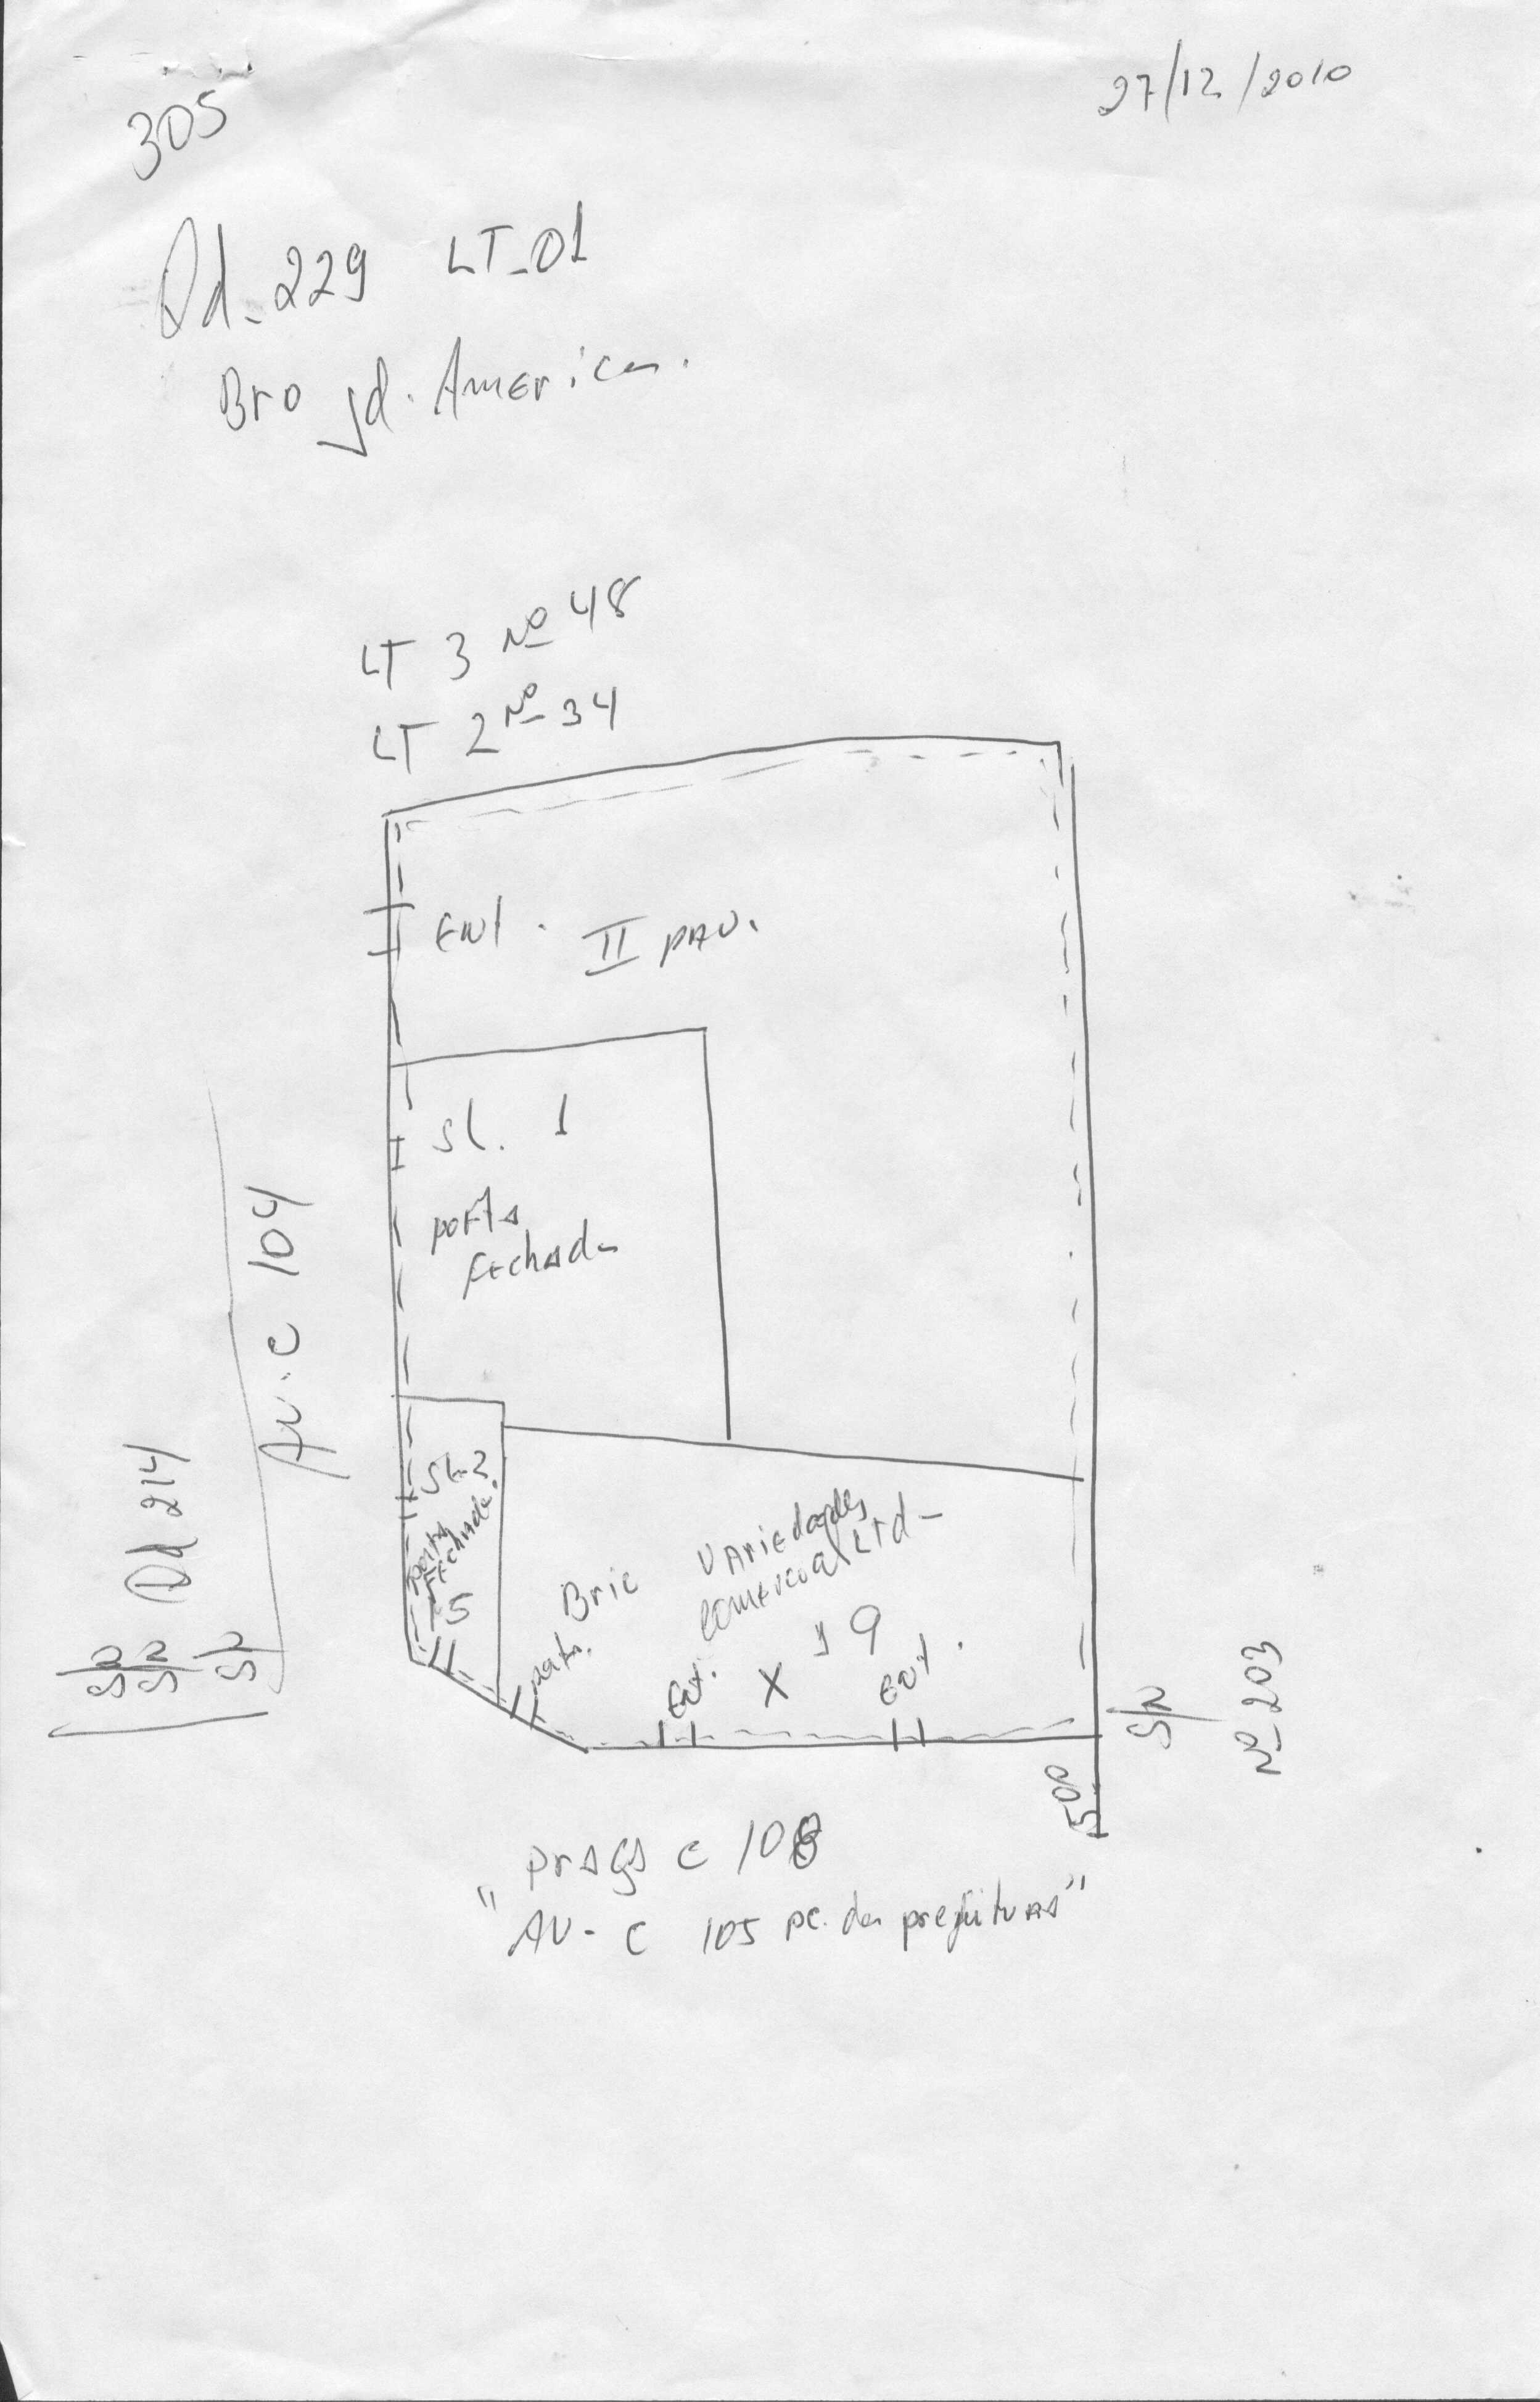 27/12/2010
305
Qd-229 LT-01
Bro Jd. America.
LT 3 Nº 48
LT 2 Nº 34
Ent. II pav.
SL. 1
porta
fechada
Av. C 104
Qd 214
S/N
S/N
S/N
SL-2
porta
fechada.
5
Bric Variedades
Comercial Ltd-
porta.
Ent. X 19 Ent.
S/N
Nº 203
500
"praça C 108
AV- C 105 pc. da prefeitura"